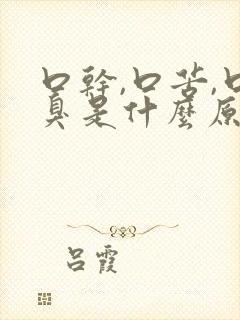 口幹,口苦,口
真是什麼原
呂霞